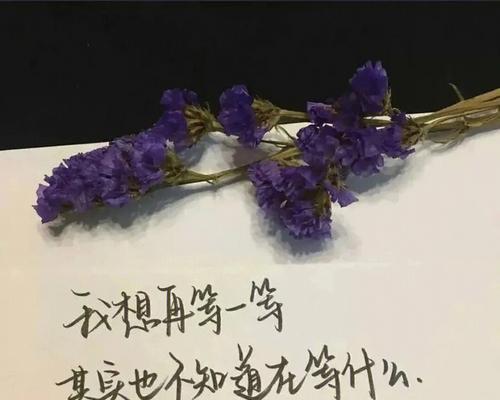 我想再等一等
其实也不知道在等什么.